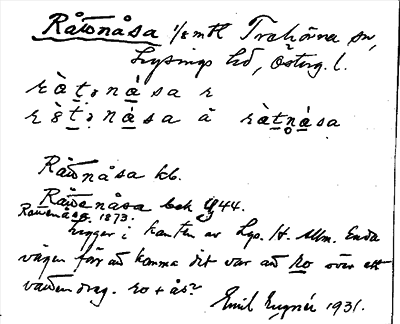 Rå͞dnåsa 1/8 mtl Trehörna sn,
Lysings hd, Österg. l.
rὰt̠ₒnàsa r
rὲt̠ₒnàsa å ràt̠n̥àsa
Rådnåsa kb.
Rådenåsa bek G 44.
Raudnåsa. 1873.
Ligger i kanten av Lys. H. Allm. Enda
vägen för att komma dit var att ro över ett
vattendrag. ro + ås?
Emil Eugnér 1931.